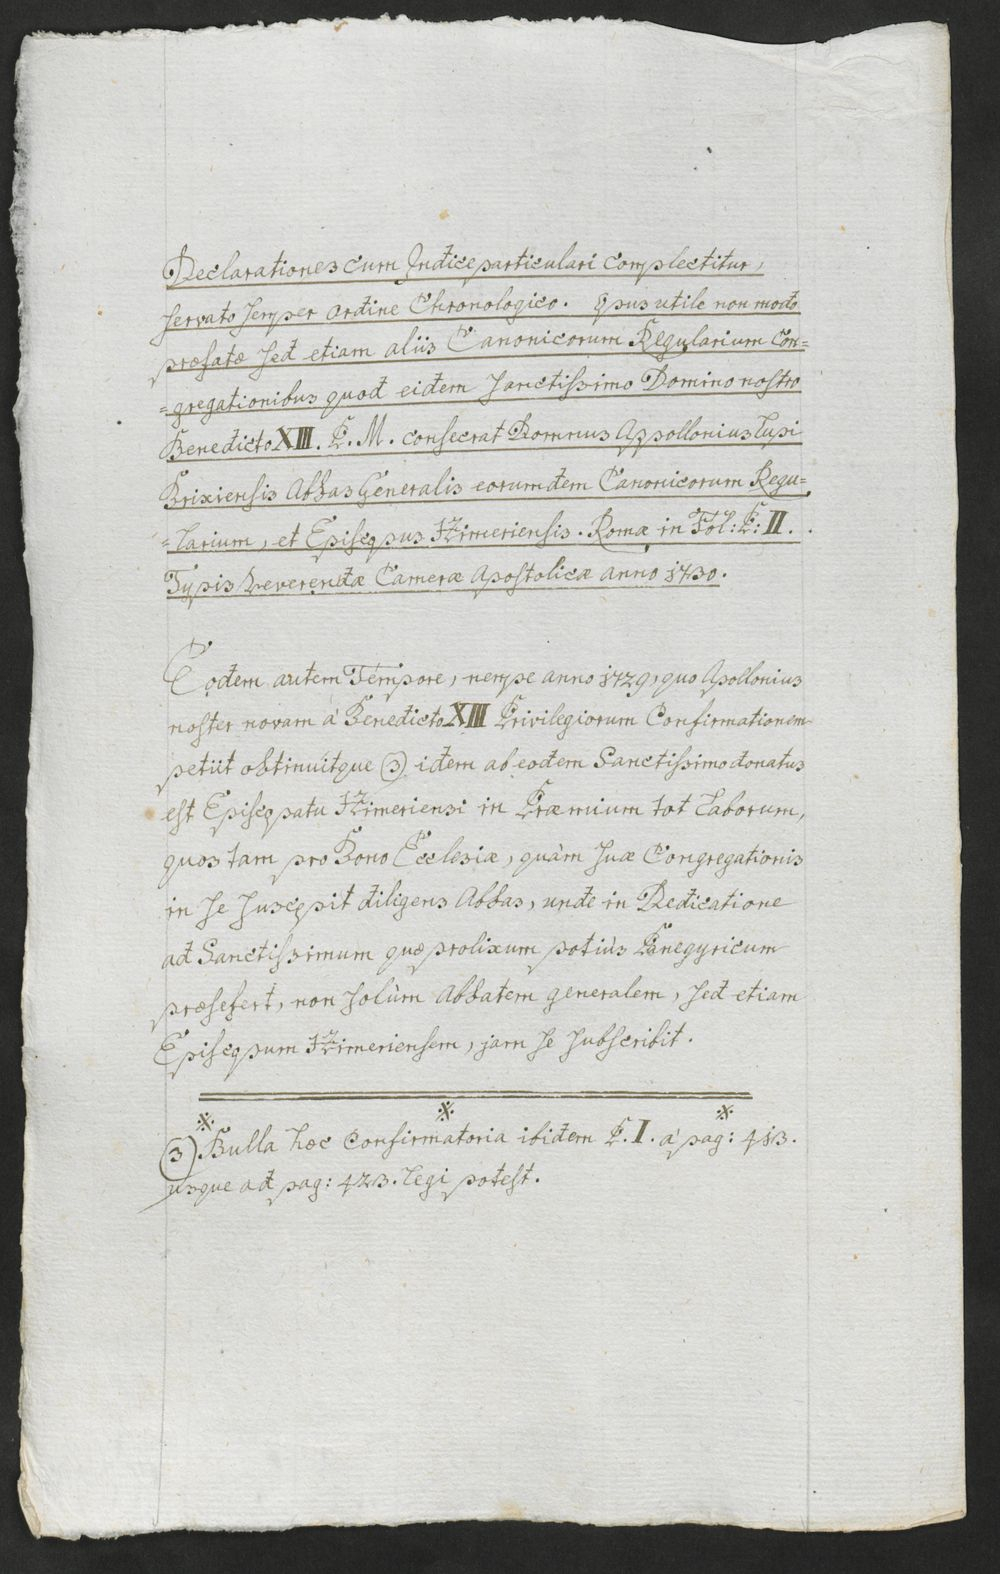 Declarationes cum Indice particulari complectitur,
servato semper ordine Chronologico. Opus utile non modo
præfatæ sed etiam aliis Canonicorum Regularium Con=
=gregationibus quod eidem Sanctissimo Domino nostro
Benedicto XIII. P. M. consecrat Domnus Appollonius Lupi
Brixiensis Abbas Generalis eorumdem Canonicorum Regu=
=larium, et Episcopus Himeriensis. Romæ in Fol: P: II.
Typis Reverendæ Cameræ Apostolicæ anno 1730.
Eodem autem Tempore, nempe anno 1729, quo Apollonius
noster novam à Benedicto XIII Privilegiorum Confirmationem
petiit obtinuitque (3) idem ab eodem Sanctissimo donatus
est Episcopatu Himeriensi in Præmium tot Laborum,
quos tam pro Bono Ecclesiæ, quàm suæ Congregationis
in se suscepit diligens Abbas, unde in Dedicatione
ad Sanctissimum quæ prolixum potiùs Panegyricum
præsefert, non solùm Abbatem generalem, sed etiam
Episcopum Himeriensem, jam se subscribit.
(3) Bulla hæc Confirmatoria ibidem P. I. à pag: 413.
usque ad pag: 423. legi potest.